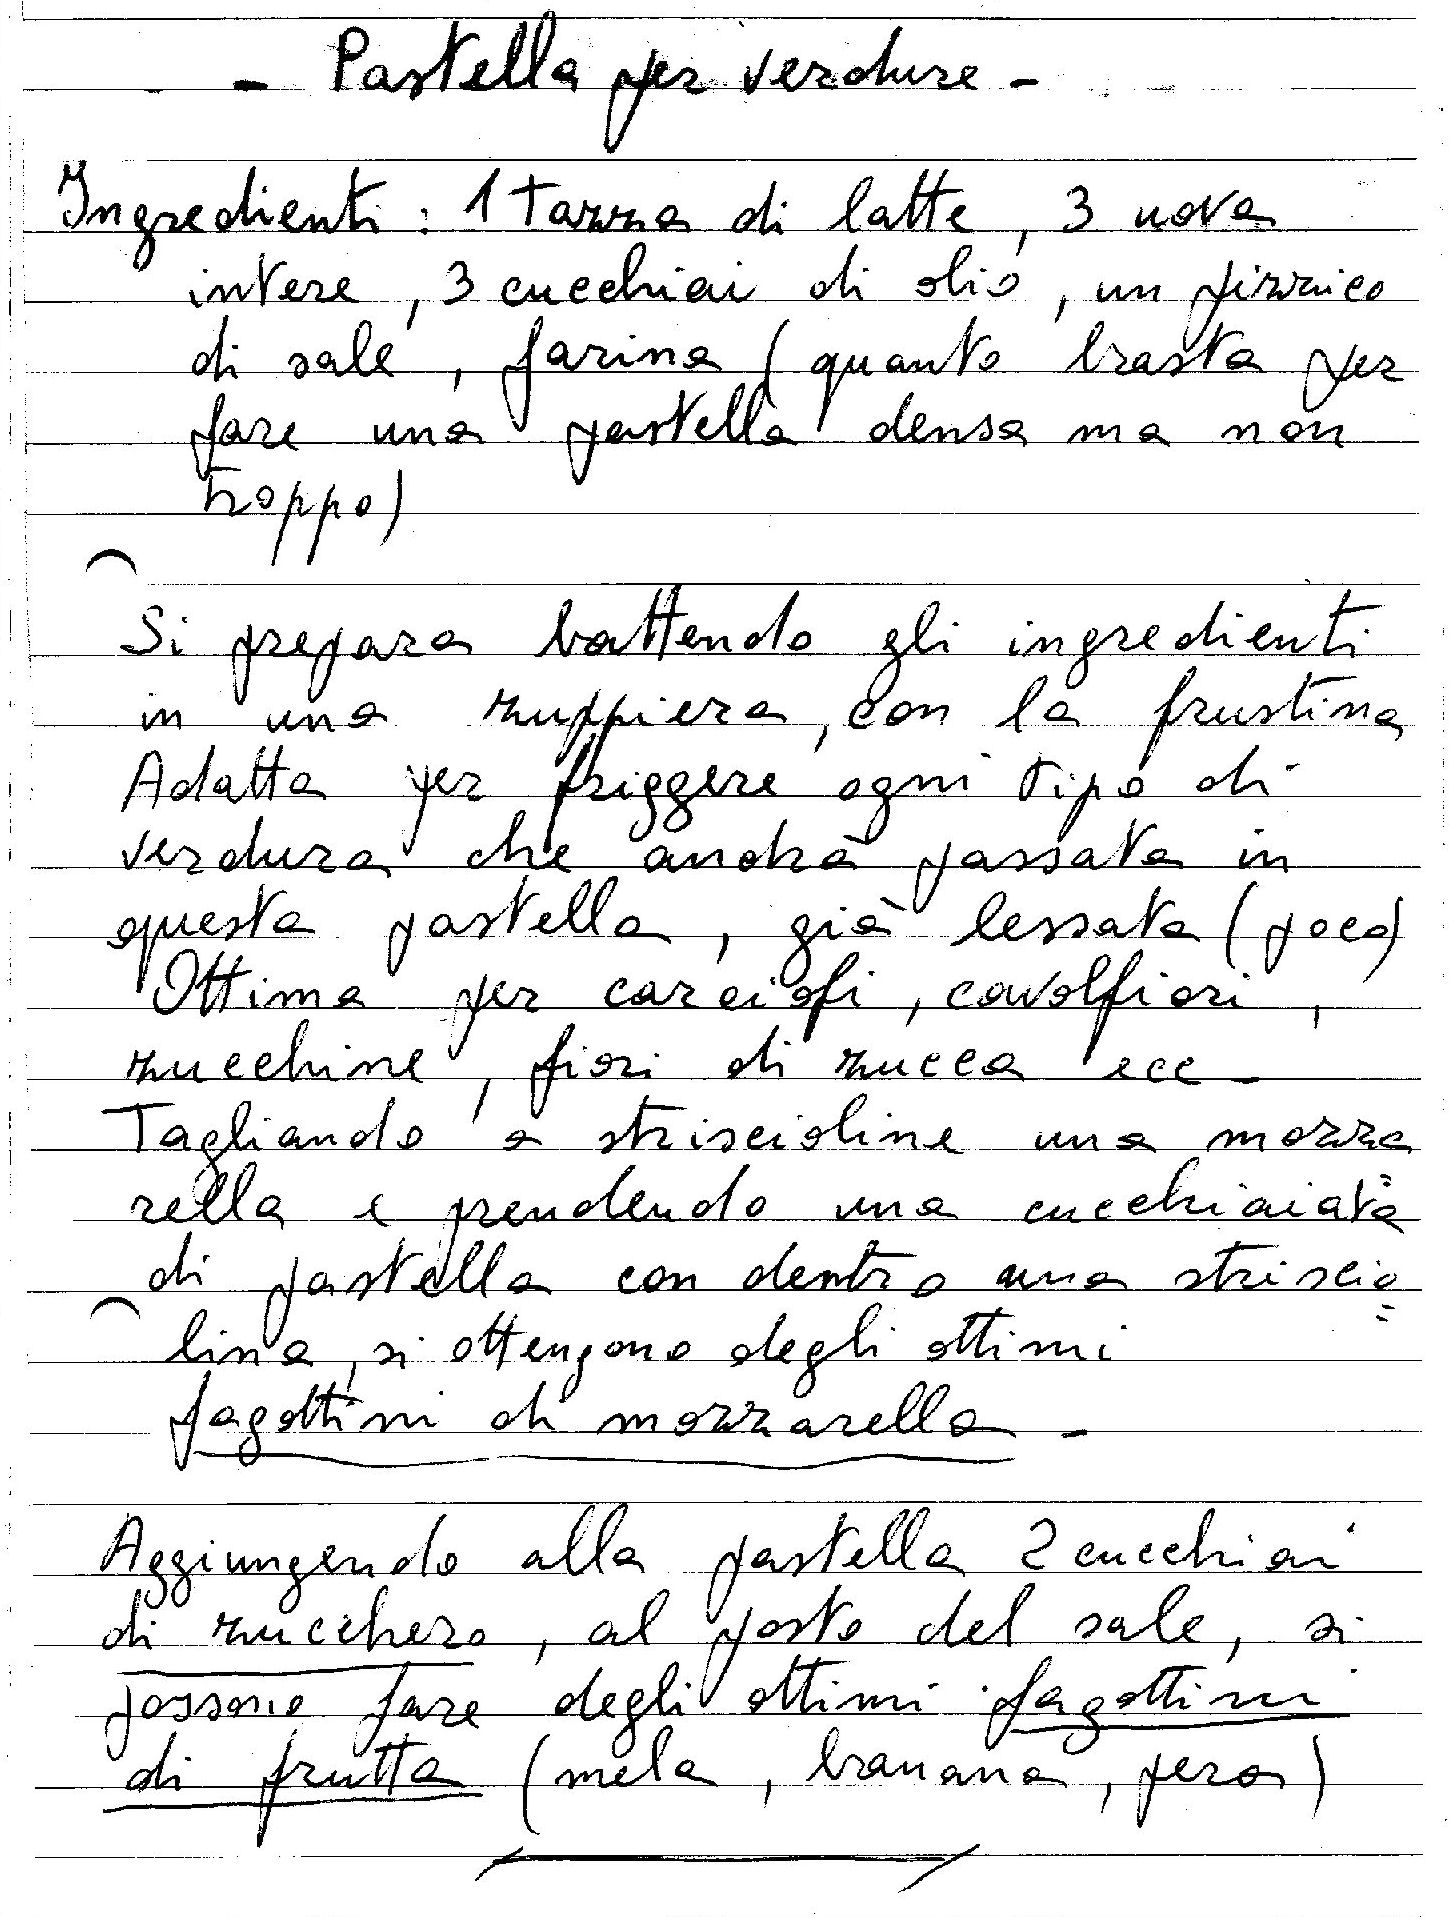 - Pastella per verdure -
Ingredienti : 1 tazza di latte, 3 uova
intere, 3 cucchiai di olio, un pizzico
di sale, farina (quanto basta per
fare una pastella densa ma non
troppo)
Si prepara battendo gli ingredienti
in una zuppiera, con la frustina
Adatta per friggere ogni tipo di
verdura che andrà passata in
questa pastella, già lessata (poco)
Ottima per carciofi, cavolfiori,
zucchine, fiori di zucca ecc -
Tagliando a striscioline una mozza
rella e prendendo una cucchiaiata
di pastella con dentro una striscio=
lina, si ottengono degli ottimi
fagottini di mozzarella -
Aggiungendo alla pastella 2 cucchiai
di zucchero, al posto del sale, si
possono fare degli ottimi fagottini
di frutta (mela, banana, pera)